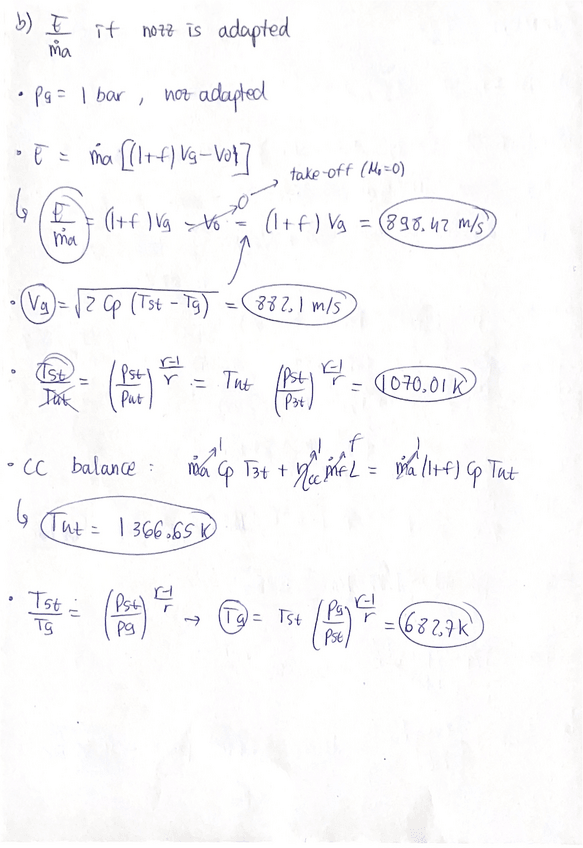 b) E/ṁa if nozz is adapted
• p9 = 1 bar, not adapted
• E = ṁa [(1+f) V9 - V0]
take-off (M0=0)
↳ E/ṁa = (1+f) V9 - V0 = (1+f) V9 = 898.42 m/s
0
• V9 = √(2 Cp (T5t - T9)) = 882,1 m/s
• T5t/T4t = (P5t/P4t)^((r-1)/r) = T4t (P5t/P3t)^((r-1)/r) = 1070,01 K
• CC balance: ṁa Cp T3t + ηcc ṁf L = ṁa (1+f) Cp T4t
1 1 f 1
↳ T4t = 1366.65 K
• T5t/T9 = (P5t/P9)^((r-1)/r) → T9 = T5t (P9/P5t)^((r-1)/r) = 682,7 K